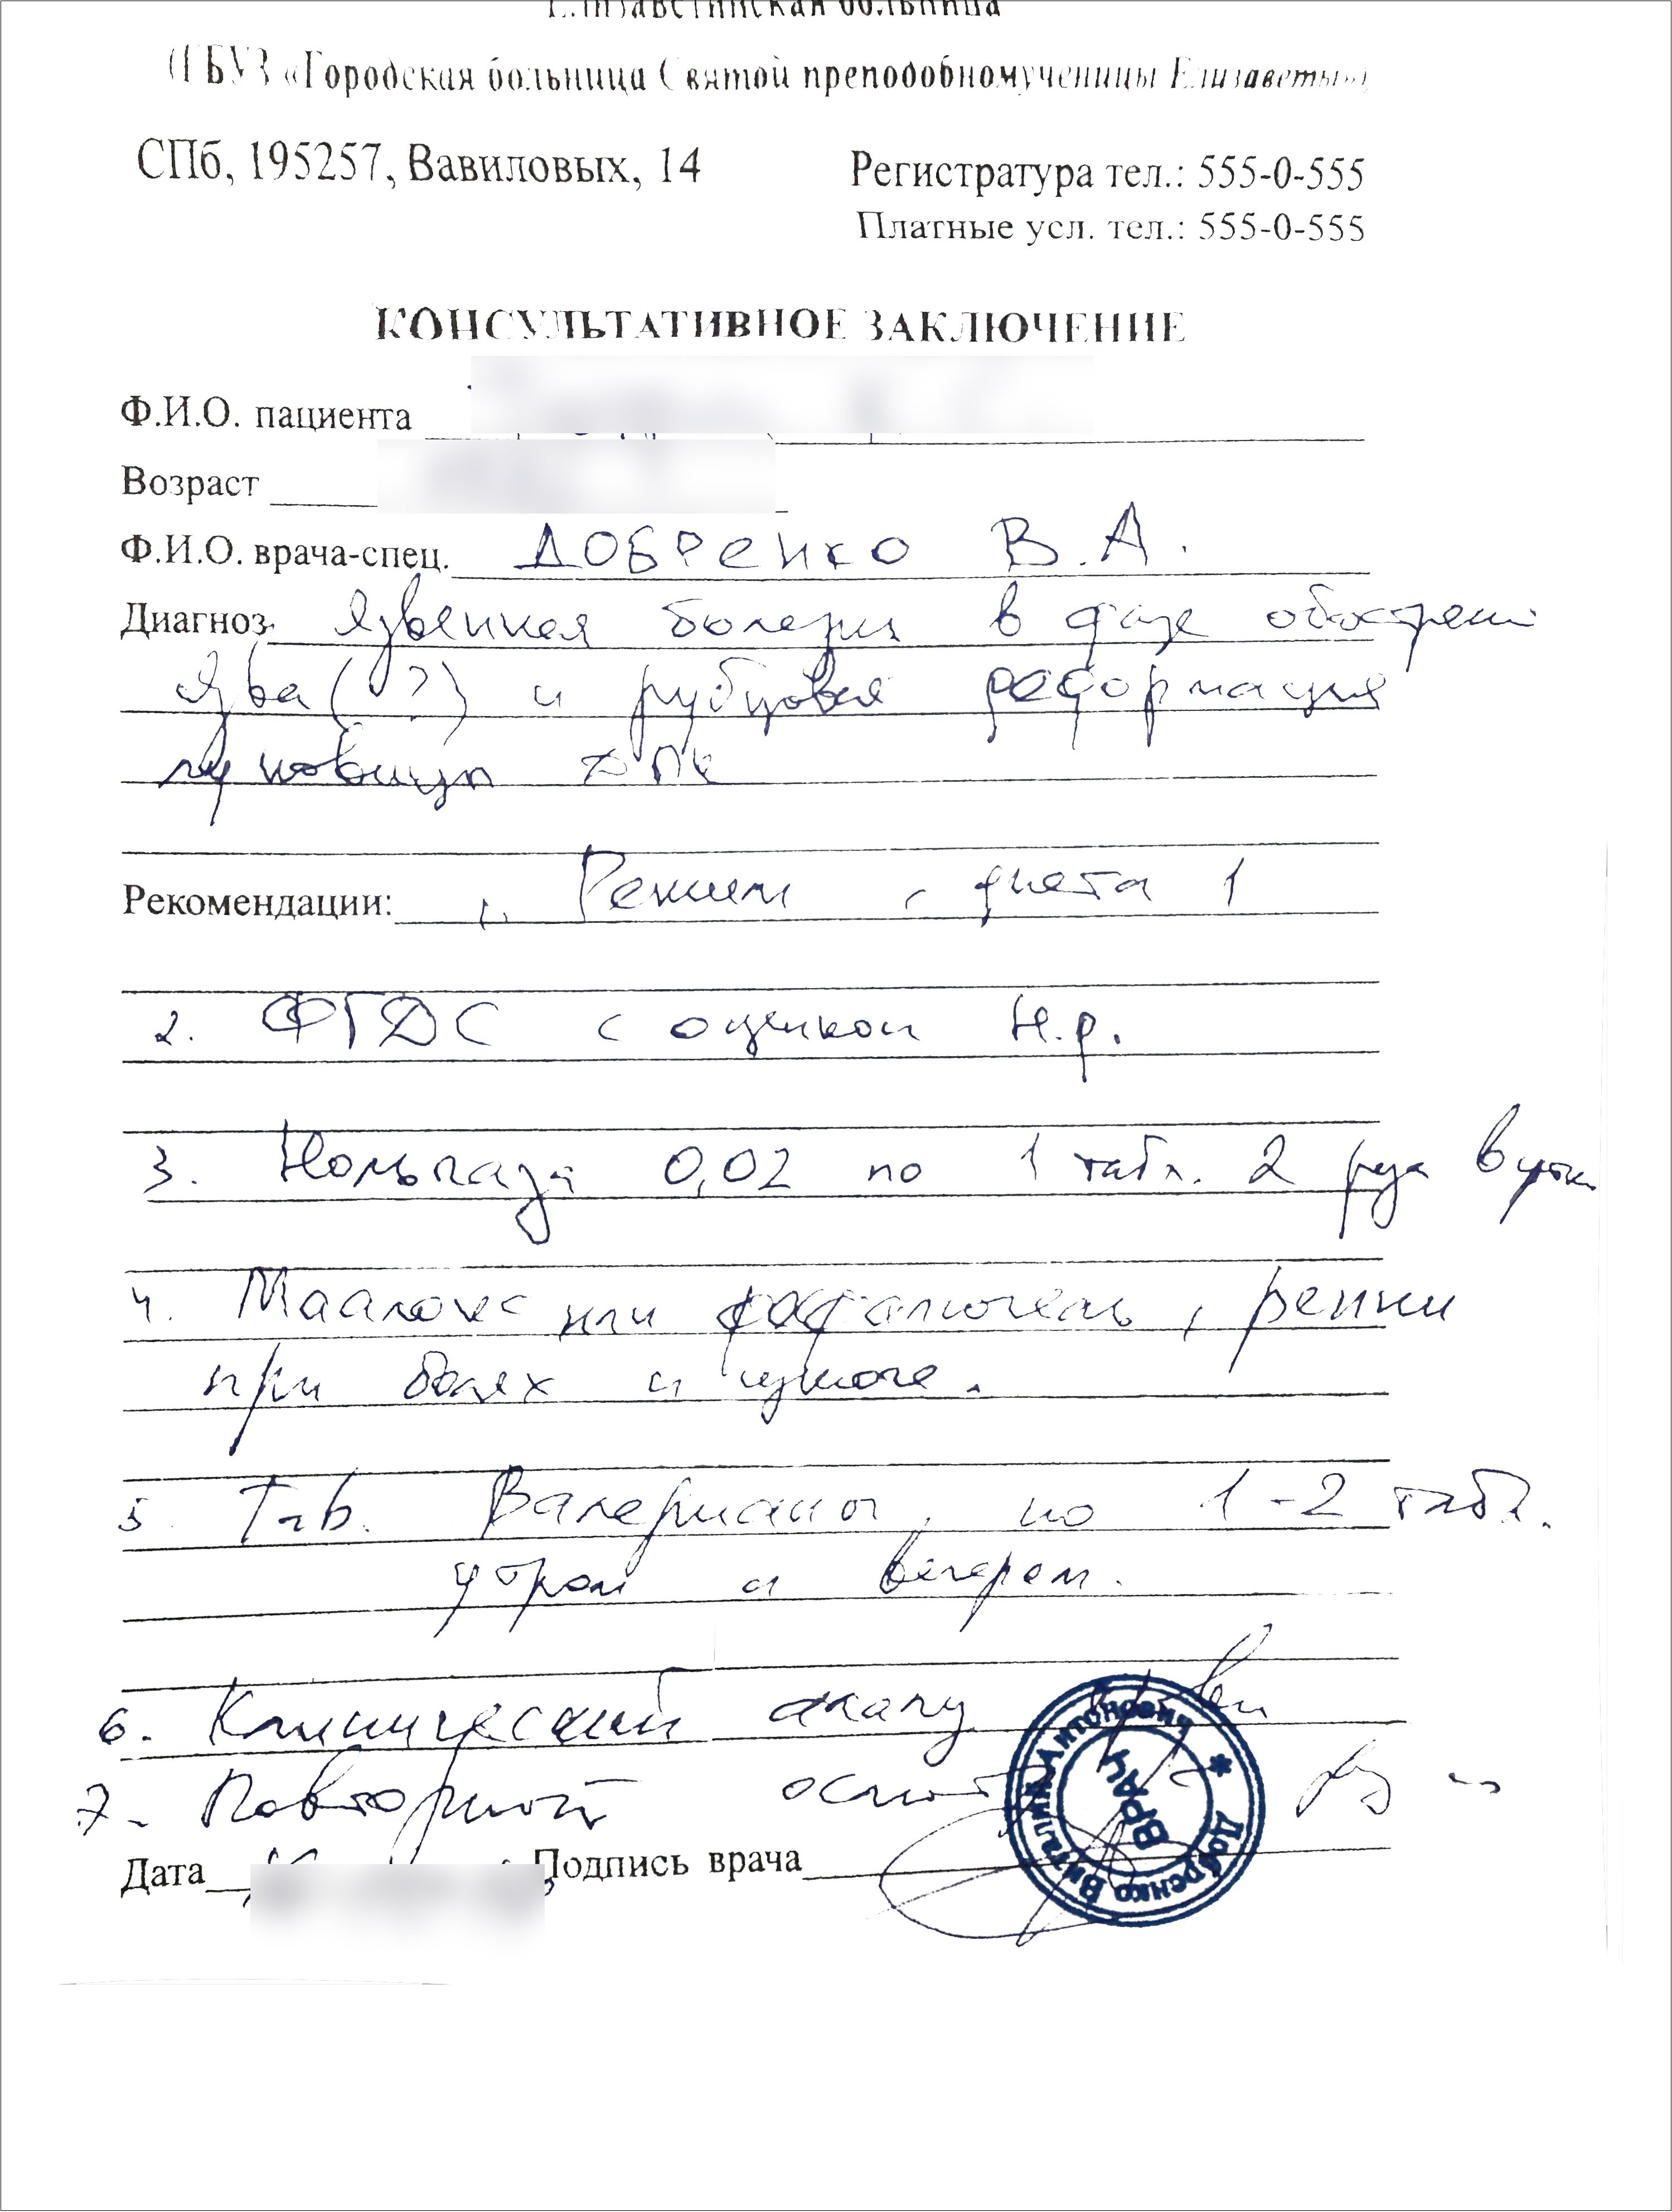 Елизаветинская больница
(ГБУЗ «Городская больница Святой преподобномученицы Елизаветы»)
СПб, 195257, Вавиловых, 14
Регистратура тел.: 555-0-555
Платные усл. тел.: 555-0-555
КОНСУЛЬТАТИВНОЕ ЗАКЛЮЧЕНИЕ
Ф.И.О. пациента
Возраст
Ф.И.О. врача-спец. Добренко В.А.
Диагноз Язвенная болезнь в фазе обострени
язва (?) и рубцовая деформация
луковицы ДПК
Рекомендации: 1. Режим, диета 1
2. ФГДС с оценкой H.p.
3. Нольпаза 0,02 по 1 табл. 2 раза в сутки
4. Маалокс или фосфалюгель, ренни
при болях и изжоге.
5. Tab. Валерианы по 1-2 табл.
утром и вечером.
6. Клинический анализ крови
7. Повторный осмотр
Дата Подпись врача
Добренко Виталий Антонович * ВРАЧ